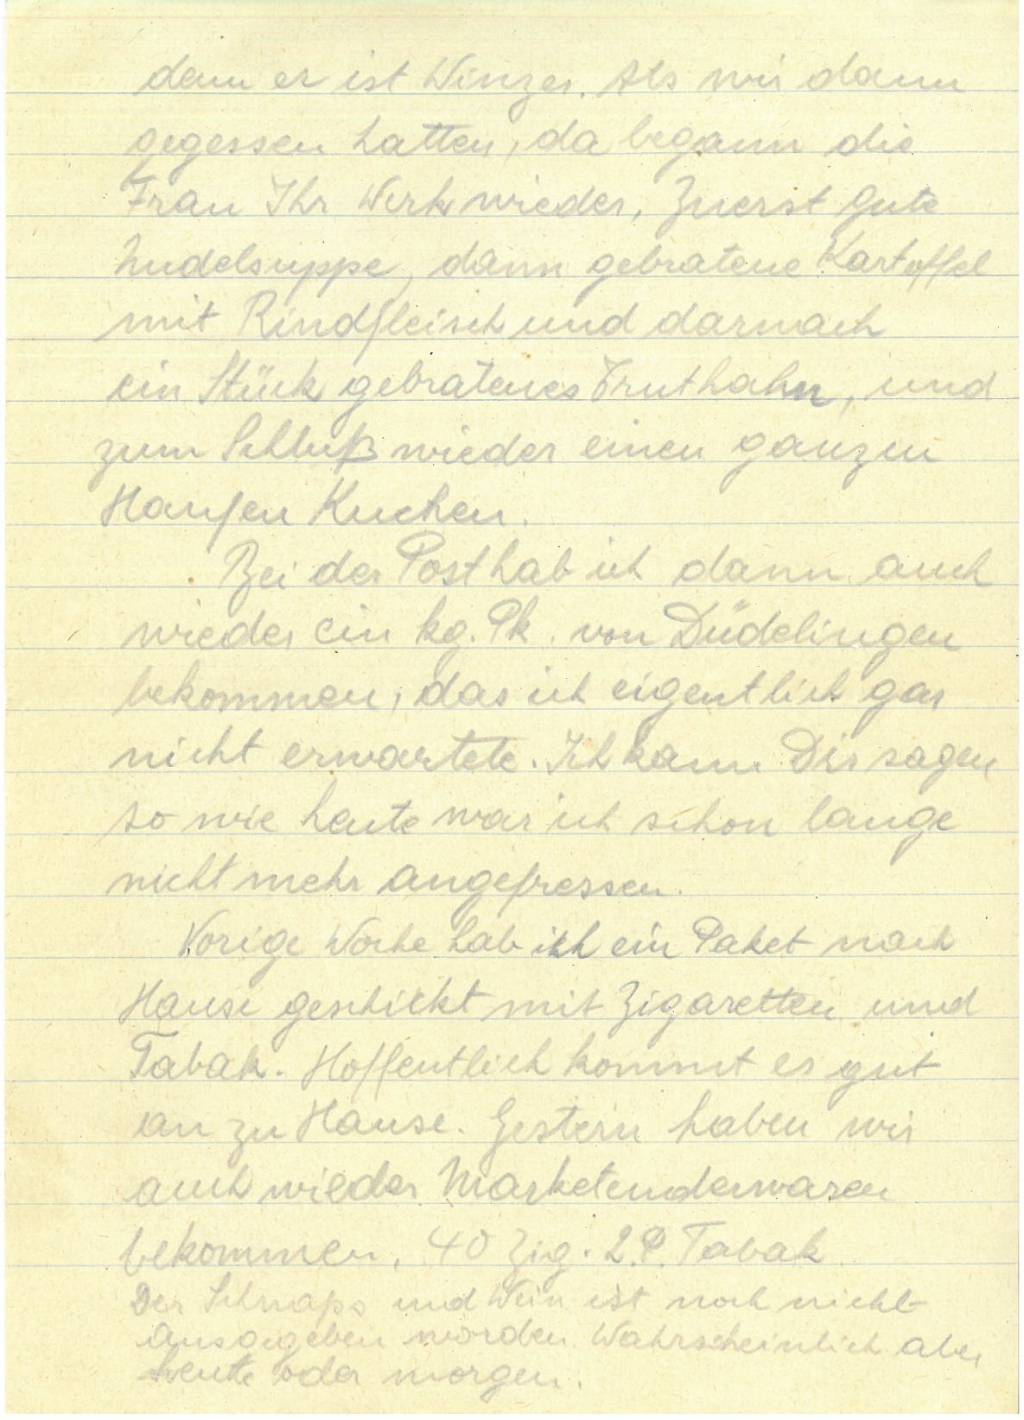 denn er ist Winzer. Als wir dann
gegessen hatten, da begann die
Frau Ihr Werk wieder, Zuerst gute
Nudelsuppe, dann gebratene Kartoffel
mit Rindfleisch und darnach
ein Stück gebratenes Truthahn, und
zum Schluß wieder einen ganzen
Haufen Kuchen.
Bei der Post hab ich dann auch
wieder ein kg. Pk. von Düdelingen
bekommen, das ich eigentlich gar
nicht erwartete. Ich kann Dir sagen
so wie heute war ich schon lange
nicht mehr angefressen.
Vorige Woche hab ich ein Paket nach
Hause geschickt mit Zigaretten und
Tabak. Hoffentlich kommt es gut
an zu Hause. Gestern haben wir
auch wieder Marketenderwaren
bekommen, 40 Zig. 2 P. Tabak
Der Schnaps und Wein ist noch nicht
ausgegeben worden. Wahrscheinlich aber
heute oder morgen.